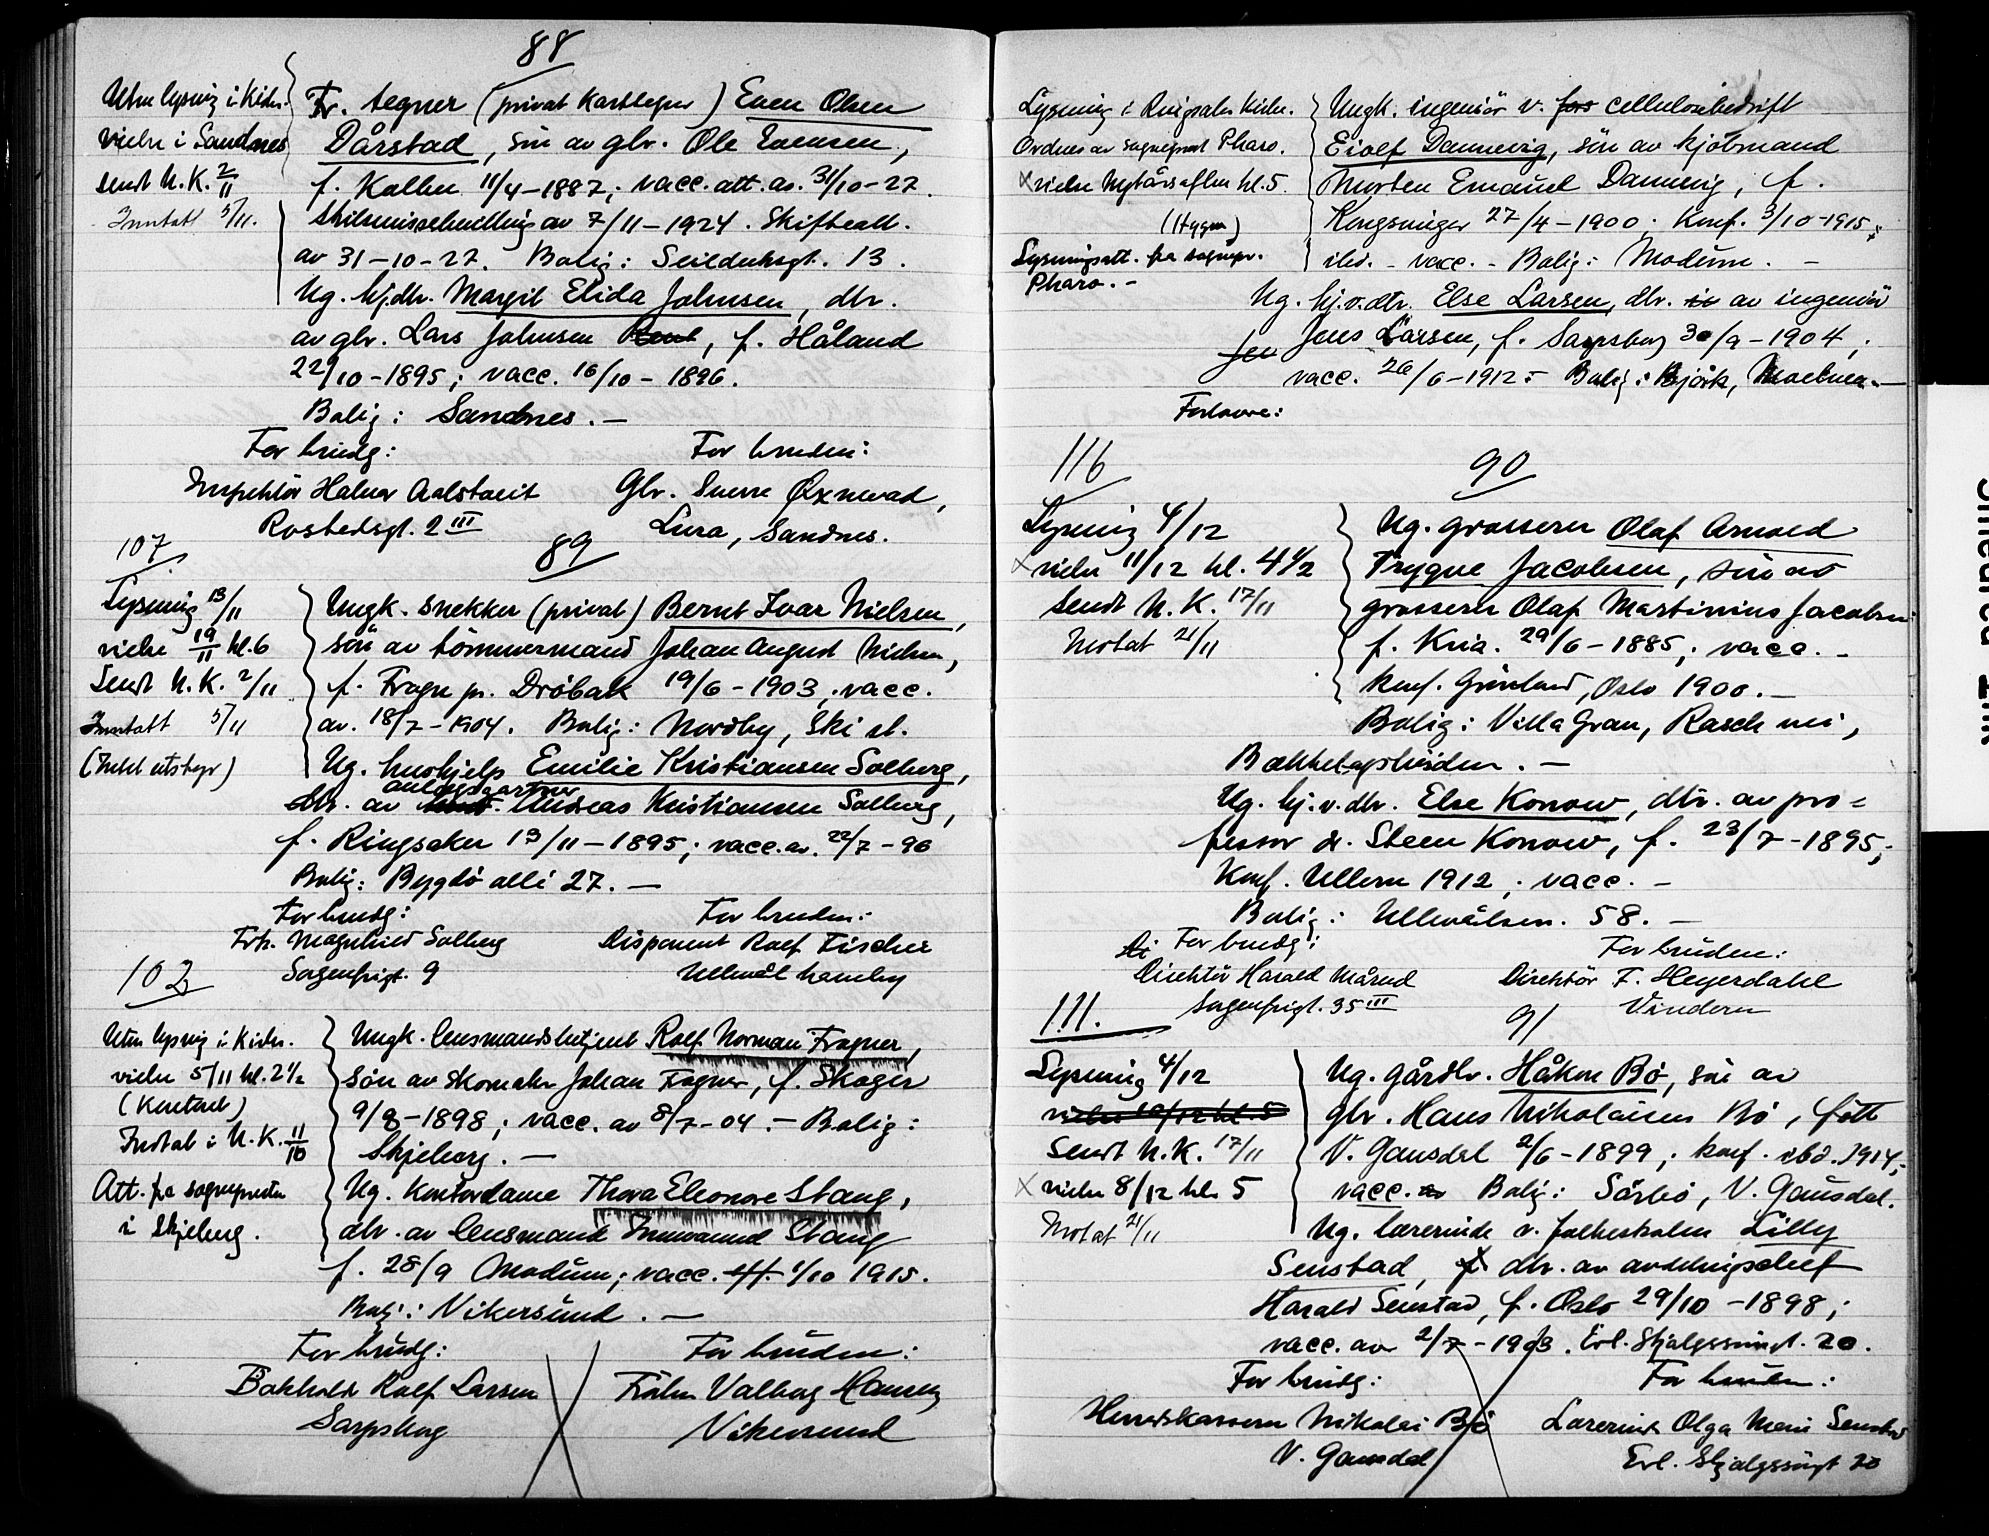 88
Uten lysning i Kirken.
vielse i Sandnes
sendt U.K. 2/11
Inntatt 5/11.
Fr. tegner (privat Karttegner) Even Olsen
Dårstad, sön av gbr. Ole Evensen,
f. 11/4-1887; vacc. att. av. 31/10-27.
Skilsmissebevilling av 7/11-1924. Skifteatt.
av 31-10-27. Bolig: Seilduksgt. 13.
Ug. hj.dtr. Margit Elida Johnsen, dtr.
av gbr. Lars Johnsen, f. Håland
22/10-1895; vacc. 16/10-1896.
Bolig: Sandnes. —
For brudg: For bruden:
Inspektör Halvor Aalstveit Gbr. Sverre Øxnevad,
Rostedsgt. 2 III Lura, Sandnes.
107
89
Lysning 13/11
vielse 19/11 kl. 6
Sendt U.K. 2/11
Inntatt 5/11
Ungk. snekker (privat) Bernt Ivar Nielsen,
sön av tömmermand Johan August Nielsen,
f. Frogn pr. Dröbak 19/6-1903, vacc.
av. 18/7-1904. Bolig: Nordby, Ski st.
Ug. hushjelp Emilie Kristiansen Solberg,
anlegsgartner
dtr. av Andreas Kristiansen Solberg,
f. Ringsaker 13/11-1895; vacc. av. 22/7-96
Bolig: Bygdö allé 27. —
For brudg: For bruden:
Frk. Magnhild Solberg Disponent Rolf Fischer
Sorgenfrigt. 9 Ullevål haveby
102
Uten lysning i Kirken.
vielse 5/11 kl. 2½
(Kontoret)
Inntat i U.K. 11/10
Att. fra sognepresten
i Skjeberg.
Ungk. lensmandsbetjent Rolf Norman Fragner,
sön av skomaker Johan Fragner, f. Skoger
9/8-1898; vacc. av 8/7-04. — Bolig:
Skjeberg. —
Ug. Kontordame Thora Eleonore Stang,
dtr. av lensmand Stang
f. 28/9 Modum; vacc. att. 1/10 1915.
Bolig: Vikersund. —
For brudg: For bruden:
Bokholder Rolf Larsen Fröken Valborg Hansen
Sarpsborg Vikersund
Lysning i Kirken.
Ordnes av sogneprest Pharo.
x vielse Nytårsaften kl. 5.
Lysningsatt. fra sognepr.
Pharo. —
Ungk. ingeniör v. for cellulosebedrift
Eiolf Dannevig, sön av kjöbmand
Morten Emanuel Dannevig, f.
Kongsvinger 27/4-1900. Konf. 3/10-1915;
ibid. — vacc. — Bolig: Modum. —
Ug. hj.v.dtr. Else Larsen, dtr. av ingeniör
Jens Larsen, f. Sarpsborg 30/9-1904,
vacc. 26/6-1912. — Bolig:
Forlovere:
116
90
Lysning 4/12
x vielse 11/12 kl. 4½
sendt U.K. 17/11
Motat 21/11
Ug. grosserer Olaf Arnold
Trygve Jacobsen, sön av
grosserer Olaf Martinius Jacobsen
f. Kria. 29/6-1885; vacc. —
Konf. Grönland, Oslo 1900. —
Bolig: Villa Gran, Rasch vei,
Bækkelagshöiden. —
Ug. hj.v.dtr. Else Konow, dtr. av pro=
fessor dr. Steen Konow, f. 23/7-1895;
Konf. Ullern 1912; vacc. —
Bolig: Ullevålsvn. 58. —
Di For brudg: For bruden:
Direktör Harald Mårud Direktör F. Heyerdahl
Sorgenfrigt. 35 III Vindern
111.
91
Lysning 4/12
vielse 10/12 kl. 5
Sendt U.K. 17/11
x vielse 8/12 kl. 5
Motat 21/11
Ug. gårdbr. Håkon Bö, sön av
gbr. Hans Nikolaisen Bö, født
V. Gausdal 2/6-1899; konf. ibid. 1914;
vacc. av Bolig: Sörbö, V. Gausdal.
Ug. lærerinde v. folkeskolen Lilly
Senstad, f dtr. av avdelingschef
Harald Senstad, f. Oslo 29/10-1898;
vacc. av 2/7-1903. Erl. Skjalgssönsgt. 20.
For brudg: For bruden:
Herredskasserer Nikolai Bö Lærerinde Olga Marie Senstad
V. Gausdal Erl. Skjalgssönsgt 20